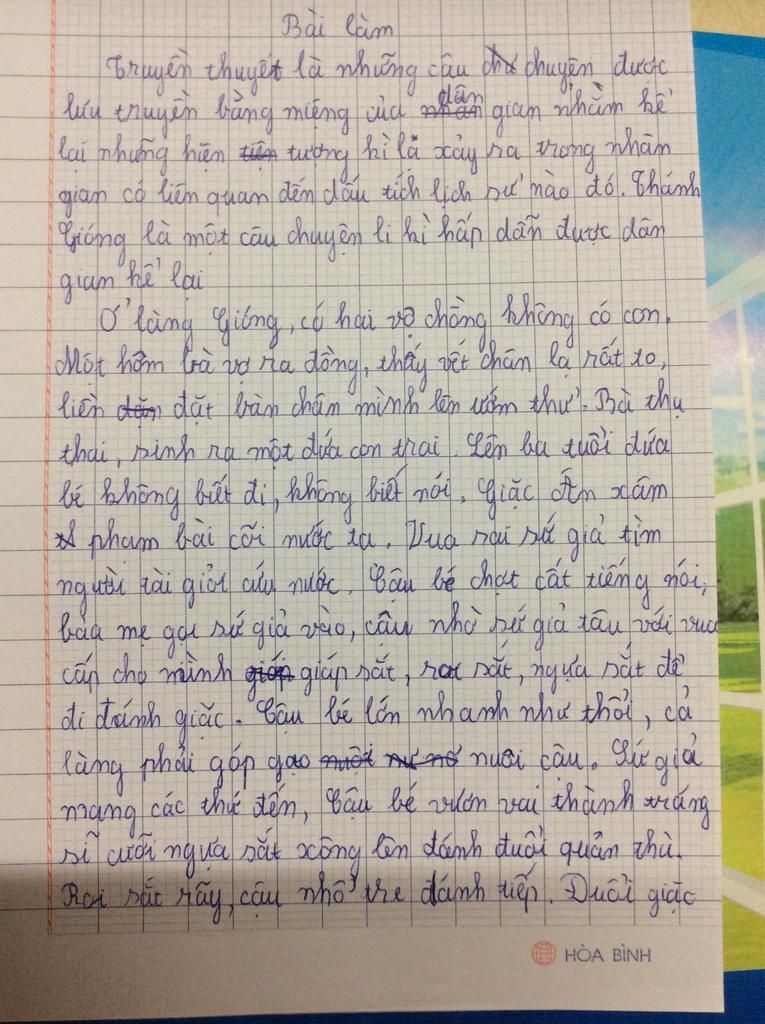 Bài làm
Truyền thuyết là những câu chuyện được
lưu truyền bằng miệng của dân gian nhằm kể
lại những hiện tượng kì lạ xảy ra trong nhân
gian có liên quan đến dấu tích lịch sử nào đó. Thánh
Gióng là một câu chuyện li kì hấp dẫn được dân
gian kể lại
Ở làng Gióng, có hai vợ chồng không có con.
Một hôm bà vợ ra đồng, thấy vết chân lạ rất to,
liền đặt bàn chân mình lên ướm thử. Bà thụ
thai, sinh ra một đứa con trai. Lên ba tuổi đứa
bé không biết đi, không biết nói. Giặc Ân xâm
phạm bài cõi nước ta. Vua sai sứ giả tìm
người tài giỏi cứu nước. Cậu bé chợt cất tiếng nói,
bảo mẹ gọi sứ giả vào, cậu nhờ sứ giả tâu với vua
cấp cho mình giáp sắt, roi sắt, ngựa sắt để
đi đánh giặc. Cậu bé lớn nhanh như thổi, cả
làng phải góp gạo nuôi cậu. Sứ giả
mang các thứ đến, Cậu bé vươn vai thành tráng
sĩ cưỡi ngựa sắt xông lên đánh đuổi quân thù.
Roi sắt rãy, cậu nhổ tre đánh tiếp. Đuổi giặc
HÒA BÌNH